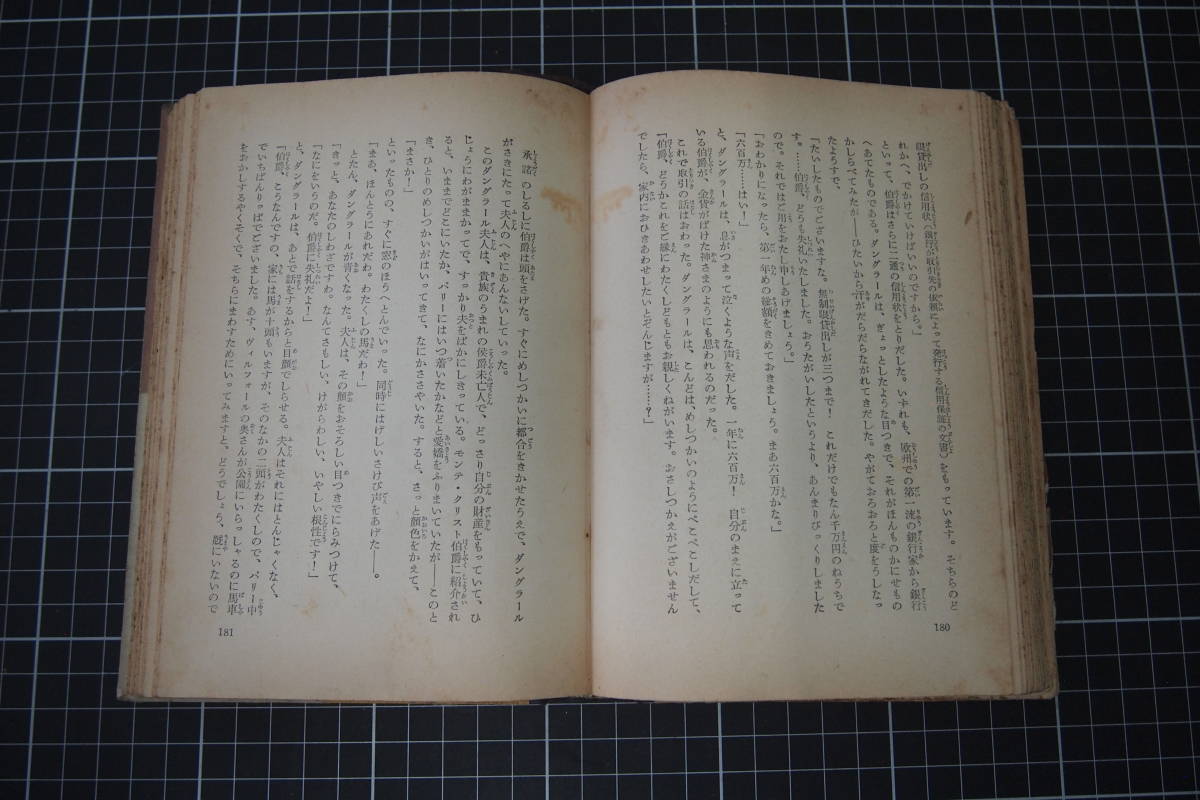 限貸出しの信用状（銀行が取引先の依頼によって発行する信用保証の文書）をもっています。そちらのど
れかへ、でかけていけばいいのですから。」
といって、伯爵はさらに二通の信用状をとりだした。いずれも、欧州での第一流の銀行家から銀行
へあてたものである。ダングラールは、ぎょっとしたような目つきで、それがほんものかにせもの
かしらべてみたが――ひたいから汗がだらだらながれてきだした。やがておろおろと度をうしなっ
たようすで、
「たいしたものでございますな。無制限貸出しが三つまで！　これだけでもなん千万円のねうちで
す。……伯爵、どうも失礼いたしました。おうたがいしたというより、あんまりびっくりしました
ので。それではご用をおたし申しあげましょう。」
「おわかりになったら、第一年めの総額をきめておきましょう。まあ六百万かな。」
「六百万……はい！」
と、ダングラールは、息がつまって泣くような声をだした。一年に六百万！　自分のまえに立って
いる伯爵が、金貨がばけた神さまのようにも思われるのだった。
これで取引の話はおわった。ダングラールは、こんどは、めしつかいのようにぺこぺこしだして、
「伯爵、どうかこれをご縁にわたくしどもともお親しくねがいます。おさしつかえがございません
でしたら、家内におひきあわせしたいとぞんじますが……？」
180
承諾のしるしに伯爵は頭をさげた。すぐにめしつかいに都合をきかせたうえで、ダングラール
がさきにたって夫人のへやにあんないしていった。
このダングラール夫人は、貴族のうまれの侯爵未亡人で、どっさり自分の財産をもっていて、ひ
じょうにわがままかってで、すっかり夫をばかにしきっている。モンテ・クリスト伯爵に紹介され
ると、いままでどこにいたか、パリーにはいつ着いたかなどと愛嬌をふりまいていたが――このと
き、ひとりのめしつかいがはいってきて、なにかささやいた。すると、さっと顔色をかえて、
「まさか！」
といったものの、すぐに窓のほうへとんでいった。同時にはげしいさけび声をあげた――。
「まあ、ほんとうにあれだわ。わたくしの馬だわ！」
とたん、ダングラールが青くなった。夫人は、その顔をおそろしい目つきでにらみつけて、
「きっと、あなたのしわざですわ。なんてさもしい、けがらわしい、いやしい根性です！」
「なにをいうのだ。伯爵に失礼だよ！」
と、ダングラールは、あとで話をするからと目顔でしらせる。夫人はそれにはとんじゃくなく、
「伯爵、こうなんですの、家には馬が十頭もいますが、そのなかの二頭がわたくしので、パリー中
でいちばんりっぱでございました。あす、ヴィルフォールの奥さんが公園にいらっしゃるのに馬車
をおかしするやくそくで、そちらにまわすためにいってみますと、どうでしょう、厩にいないので
181